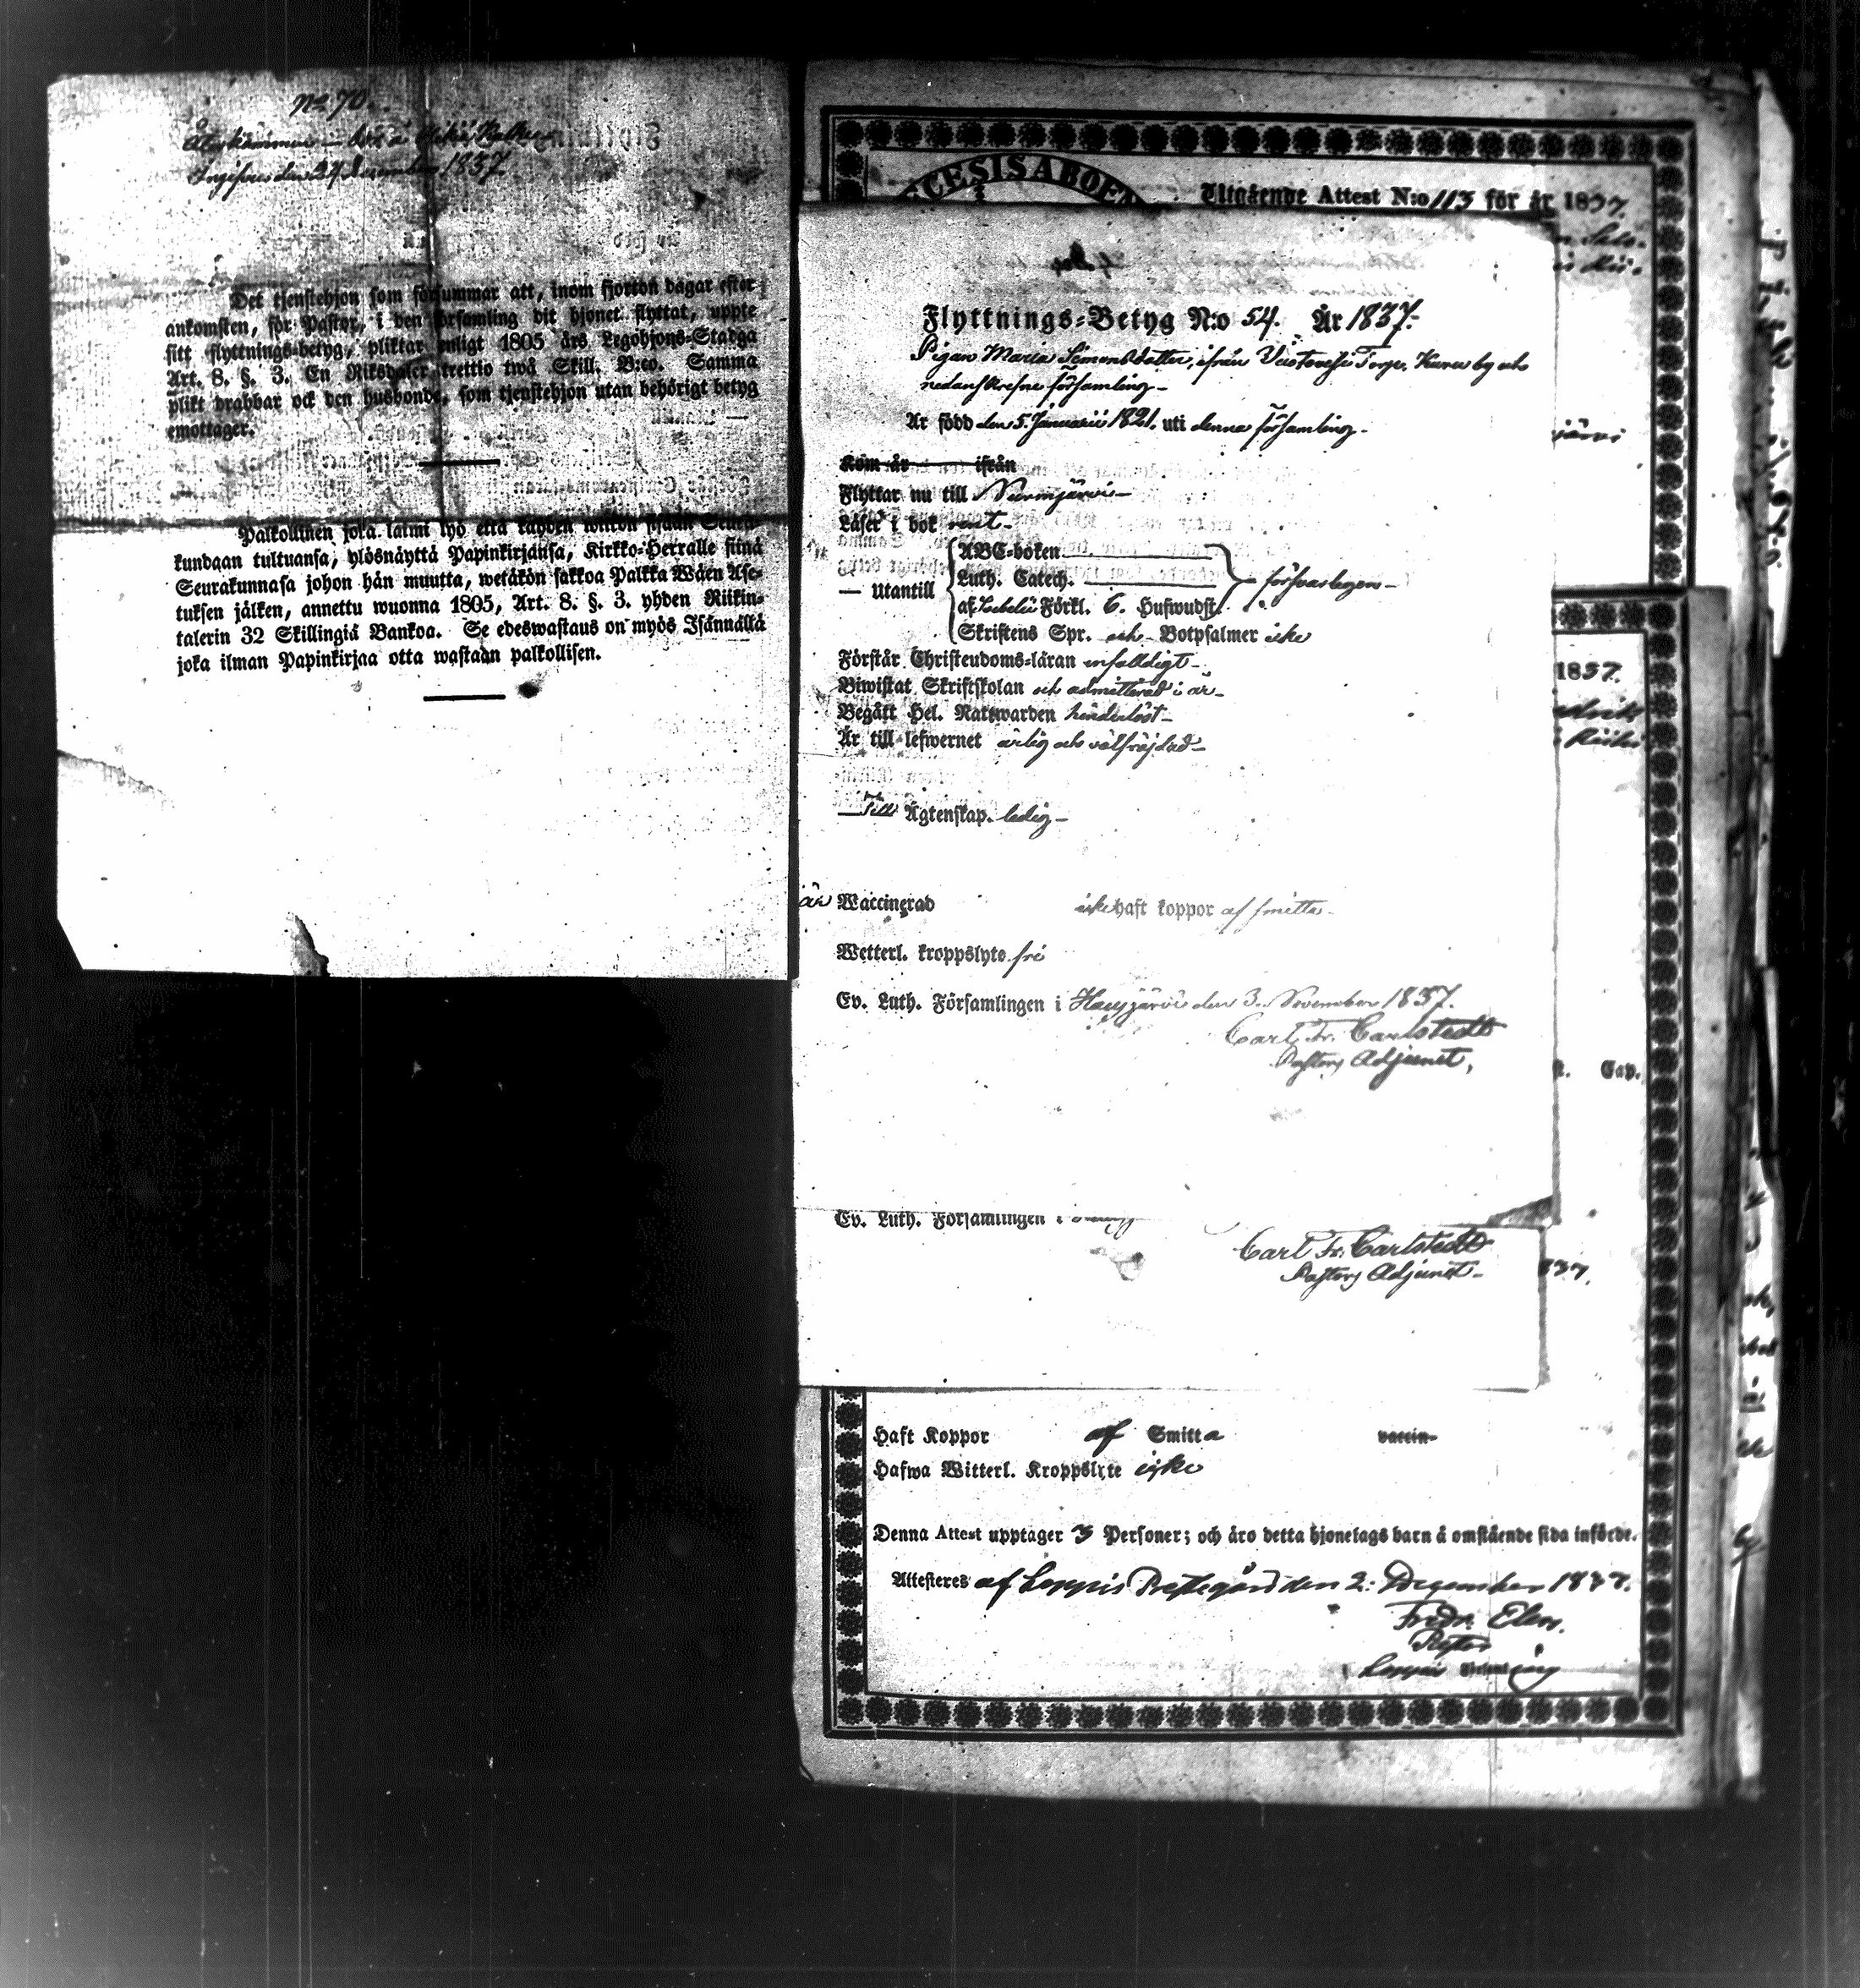 No 70.
Ingifven den 24 December 1837.
Det tjenstehjon som försummar att, inom fjorton dagar efter
ankomsten, för Pastor, i den församling dit hjonet flyttat, uppte
sitt flyttnings-betyg, pliktar enligt 1805 års Legohjons-Stadga
Art. 8. §. 3. En Riksdaler trettio twå Skill. B:co. Samma
plikt drabbar ock den husbonde, som tjenstehjon utan behörigt betyg
emottager.
Palkollinen joka laimi lyö että kahden wiikon sisään Seura-
kundaan tultuansa, ylösnäyttä Papinkirjansa, Kirkko-Herralle siinä
Seurakunnasa johon hän muutta, wetäkön sakkoa Palkka Wäen Ase-
tuksen jälken, annettu wuonna 1805, Art. 8. §. 3. yhden Riikin-
talerin 32 Skillingiä Bankoa. Se edeswastaus on myös Isännällä
joka ilman Papinkirjaa otta wastaan palkollisen.
Utgående Attest N:o 113 för år 1837.
Flyttnings-Betyg N:o 54. År 1837.
Pigan Maria Simonsdotter, ifrån Torp, by och
nedanskrefne församling
Är född den 5. Januarii 1821. uti denna församling.
Kom år ifrån
Flyttar nu till Nurmijärvi
Läser i bok rent
ABC-boken
Luth. Catech.
— Utantill försvarligen
af Förkl. 6. Hufwudst.
Skriftens Spr. och Botpsalmer icke
Förstår Christendoms-läran enfaldigt
Biwistat Skriftskolan och admitterad i år
Begått Hel. Nattwarden hinderlöst
Är till lefwernet ärlig och välfräjdad
Till Ägtenskap. ledig
är Waccinerad icke haft koppor af smitta
Wetterl. kroppslyte fri
Ev. Luth. Församlingen i Haujärvi den 3. November 1837.
Carl Fr. Carlstedt
Pastors Adjunct,
Ev. Luth. Församlingen i
Carl Fr. Carlstedt
Pastors Adjunct
1837.
t. Cap.
837.
Haft Koppor af Smitta vaccin
Hafwa Witterl. Kroppslyte icke
Denna Attest upptager 3 Personer; och äro detta hjonelags barn å omstående sida införde.
Attesteres af Loppis Prestegård den 2. December 1837.
Fredr. Elen.
Pastor
Loppis